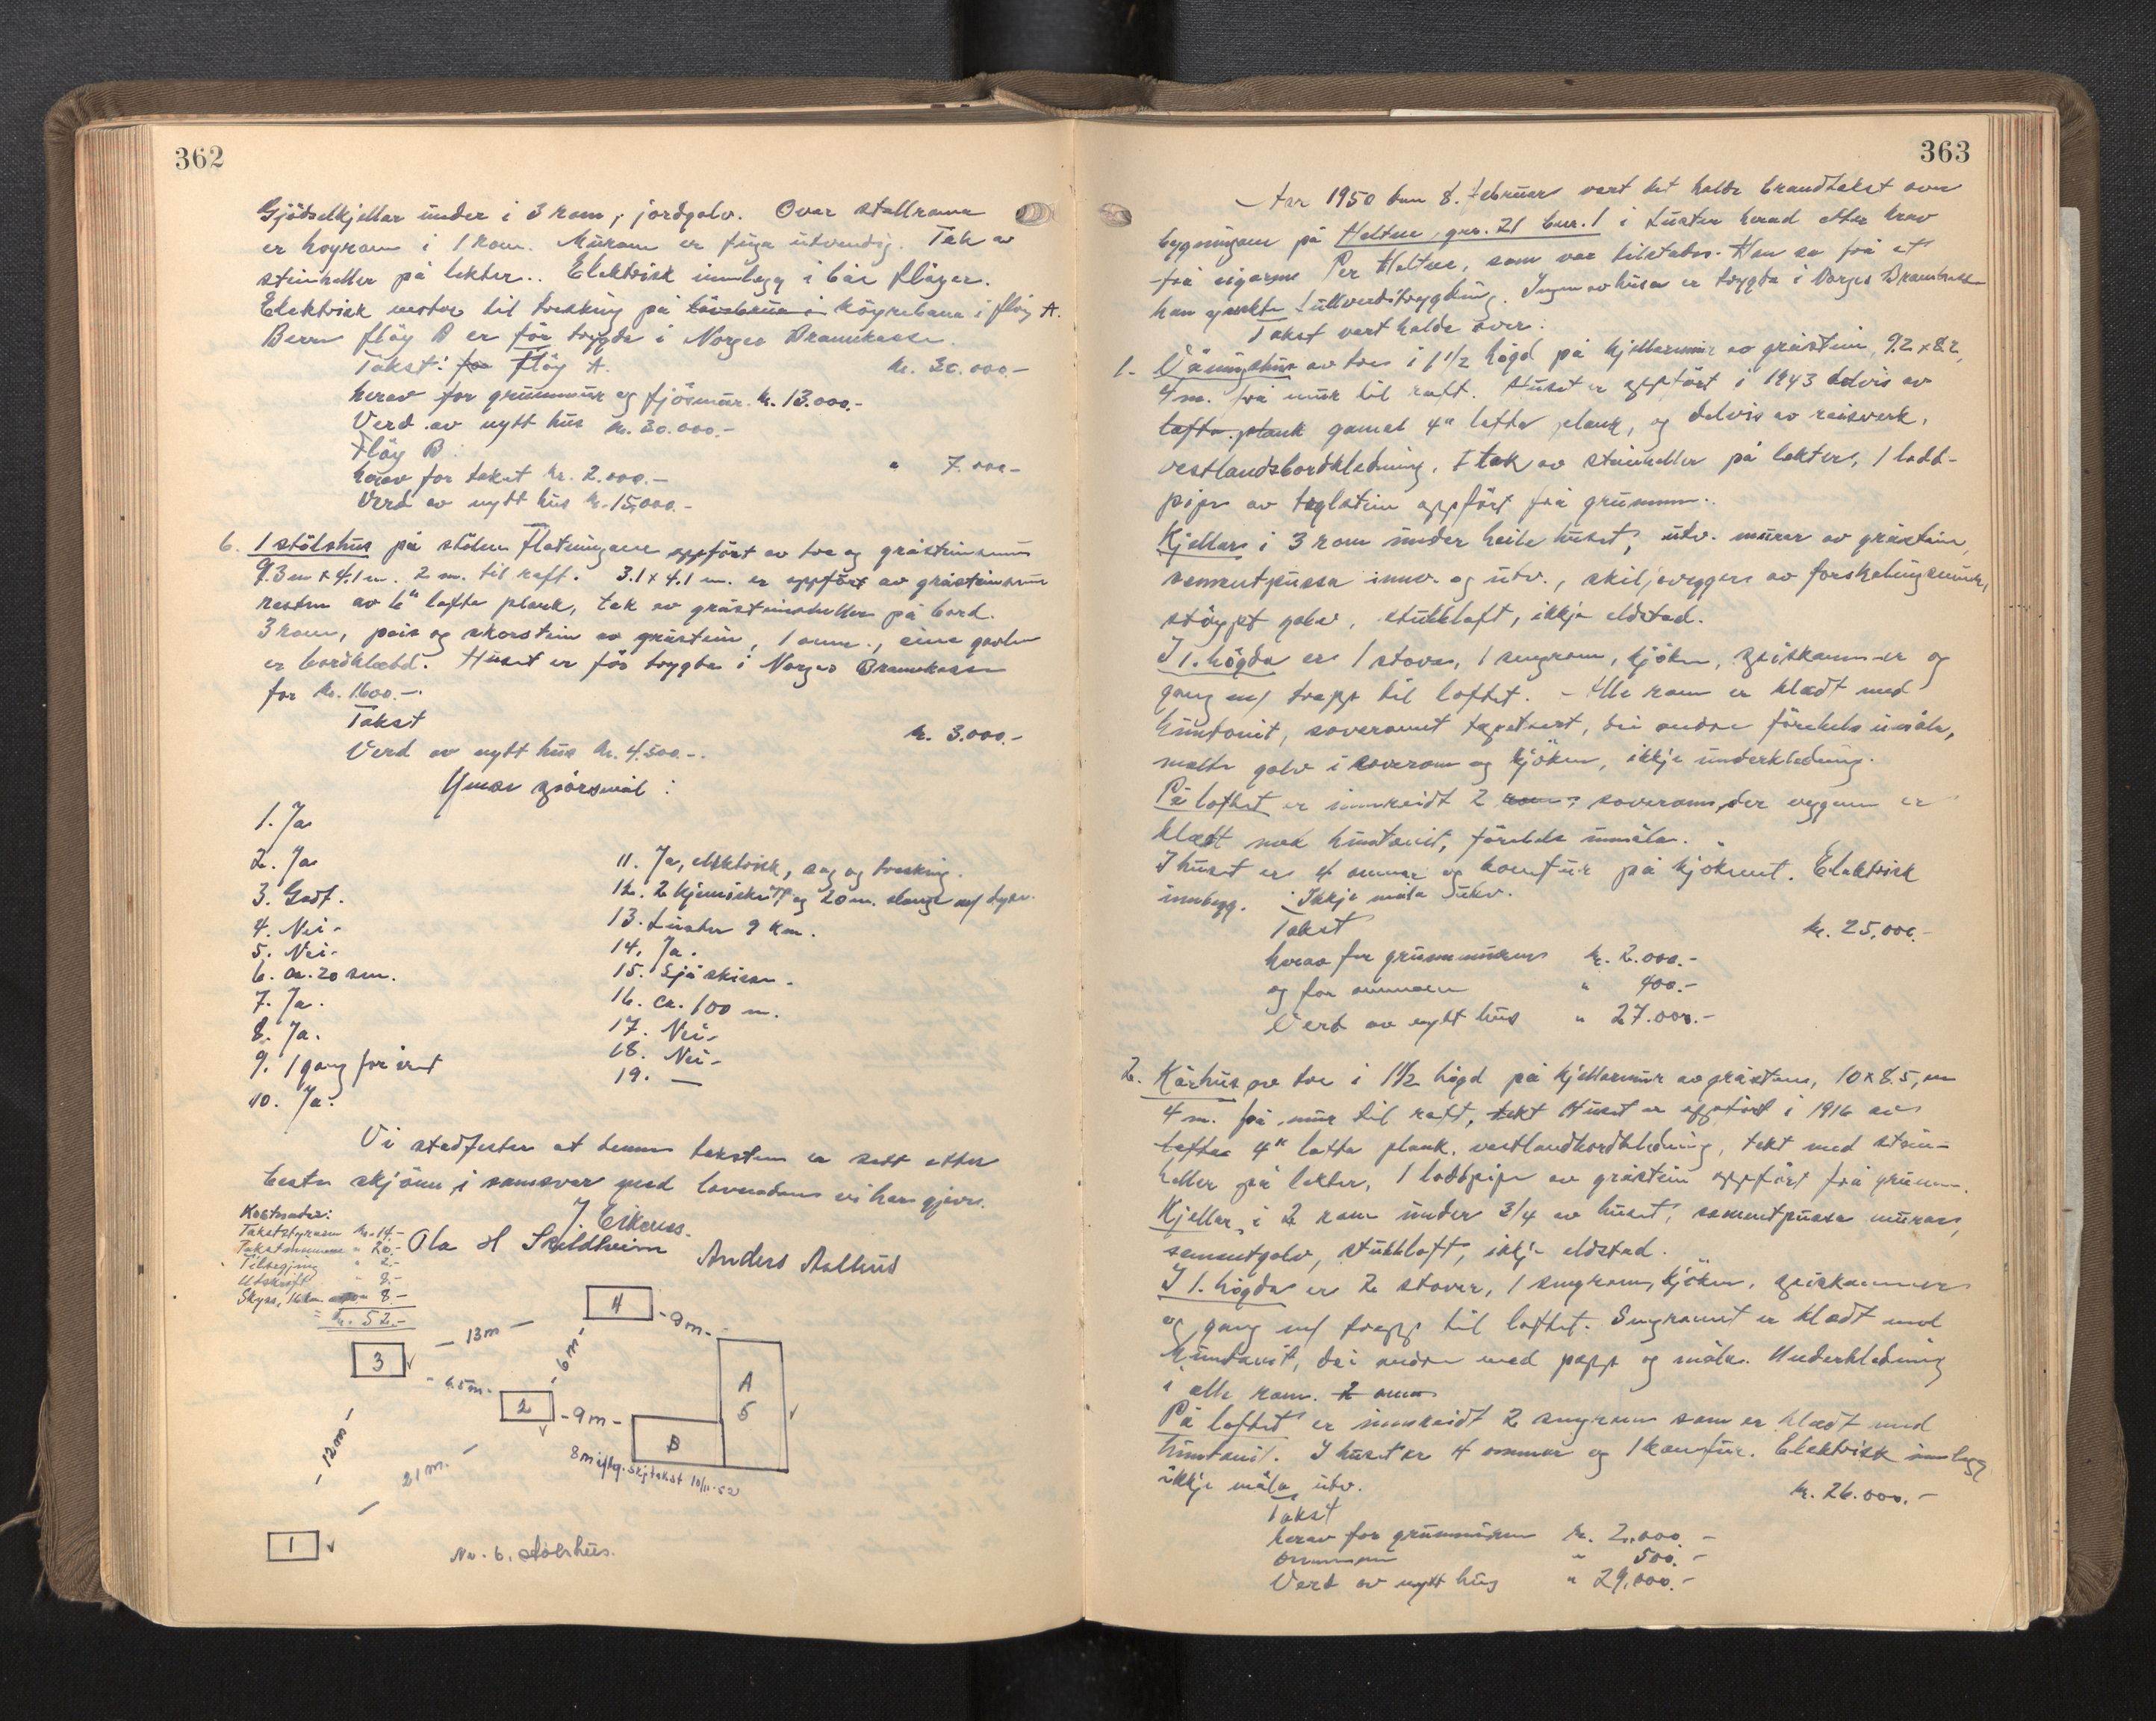 362
Gjödselkjellar under i 3 rom, jordgolv. Over stallrome
er höyrom i 1 rom. Murane er fuga utvendig. Tak av
steinheller på lekter.. Elektrisk innlegg i båe flöyer.
Elektrisk motor til tresking på låvebrua i köyrebana i flöy A.
Berre flöy B er för trygda i Norges Brannkasse.
Takst: for Flöy A. kr. 30.000.-
herav for grunnmur og fjösmur kr. 13.000.-
Verd av nytt hus kr. 30.000.-
Flöy B. " 7.000.-
herav for taket kr. 2.000.-
Verd av nytt hus kr. 15,000.-
6. 1 stölshus på stölen Flatningane oppfört av tre og gråsteinsmur
9.3 m x 4.1 m. 2 m. til raft. 3.1 x 4.1 m. er oppfört av gråsteinsmur
resten av 6" lafta plank, tak av gråsteinsheller på bord.
3 rom, peis og skorstein av gråstein, 1 omn., eine gavlen
er bordklædd. Huset er för trygda i Norges Brannkasse
for kr. 1600.-.
Takst kr. 3.000.-
Verd av nytt hus kr. 4.500.-.
Ymse spörsmål:
1. Ja
2. Ja
3. Godt.
4. Nei-
5. Nei-
6. ca. 20 sm.
7. Ja.
8. Ja.
9. 1 gang for året
10. Ja.
11. Ja, elektrisk, sag og tresking.
12. 2 kjemiske app og 20 m. slange m/ dyse.
13. Luster 9 km.
14. Ja.
15. Sjå skissa.
16. ca. 100 m.
17. Nei-
18. Nei-
19. —
Vi stadfester at denne taksten er sett etter
beste skjönn i samsvar med lovnaden vi har gjeve.
J. Eikenes.
Ola H Skildheim Anders Aalhus
Kostnader:
Takststyraren kr. 14.-
Takstmennene " 20.-
Tilsegjing " 2.-
Utskrift " 8.-
Skyss, 16 km " 8.-
kr. 52.-
4
-9m-
-13m-
3
-6m-
6.5m-
2
-9m-
A
5
B
8m iflg. skjtakst 10/11-52
-12m-
21m.
1
Nr. 6, stölshus.
363
Aar 1950 den 8. februar vart det halde brandtakst over
bygningane på Heltne, gnr. 21 bnr. 1 i Luster herad etter krav
frå eigaren Per Heltne, som var tilstades. Han sa frå at
han ynskte fullverditrygding. Ingen av husa er trygda i Norges Brannkasse
Takst vart halde over:
1. Våningshus av tre i 1 1/2 högd på kjellarmur av gråstein, 9.2 x 8.2,
4 m. frå mur til raft. Huset er oppfört i 1943 delvis av
lafta plank gamal 4" lafta plank, og delvis av reisverk,
vestlandsbordkledning, tak av steinheller på lekter, 1 lodd-
pipe av teglstein oppfört frå grunnen.
Kjellar i 3 rom under heile huset, utv. murar av gråstein,
sementpussa innv. og utv., skiljeveggene av forskalingsmur,
stöypt golv, stubbloft, ikkje eldstad.
I 1. högda er 1 stova, 1 sengrom, kjöken, spiskammer og
gang m/ trapp til loftet. - Alle rom er klædt med
huntonit, soverommet tapetsert, dei andre förebels umåla,
malte golv i soverom og kjöken, ikkje underkledning.
På loftet er innreidt 2 rom, soverom, der veggene er
klædt med huntonit, förebels umåla.
I huset er 4 omnar og komfur på kjökenet. Elektrisk
innlegg. Ikkje måla utv.
Takst kr. 25,000.-
herav for grunnmuren kr. 2.000.-
og for omnane " 400.-
Verd av nytt hus " 27.000.-
2. Kårhus av tre i 1 1/2 högd på kjellarmur av gråstein, 10 x 8.5, m
4 m. frå mur til raft, tekt Huset er oppfört i 1916 av
lafta 4" lafta plank, vestlandbordkledning, tekt med stein-
heller på lekter, 1 loddpipe av gråstein oppfört frå grunnen.
Kjellar i 2 rom under 3/4 av huset, sementpussa murar,
sementgolv, stubbloft, ikkje eldstad.
I 1. högda er 2 stover, 1 sengrom, kjöken, spiskammer
og gang m/ trapp til loftet. Sengromet er klædt med
huntonit, dei andre med papp og måla. Underkledning
i alle rom. 2 omnar
På loftet er innreidt 2 sengrom som er klædt med
huntonit. I huset er 4 omnar og 1 komfur. Elektrisk innlegg
ikkje måla utv. kr. 26.000.-
Takst
herav for grunnmuren kr. 2,000.-
omnane " 500.-
Verd av nytt hus " 29,000.-